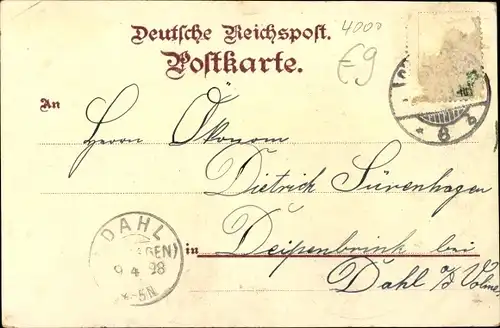 Deutsche Reichspost.
Postkarte.
4000
£9
An
Herrn Ökonom
Dietrich Sürenhagen
in Deipenbrink bei
Dahl a/d Volme
DAHL
9 4 98
* 8 *